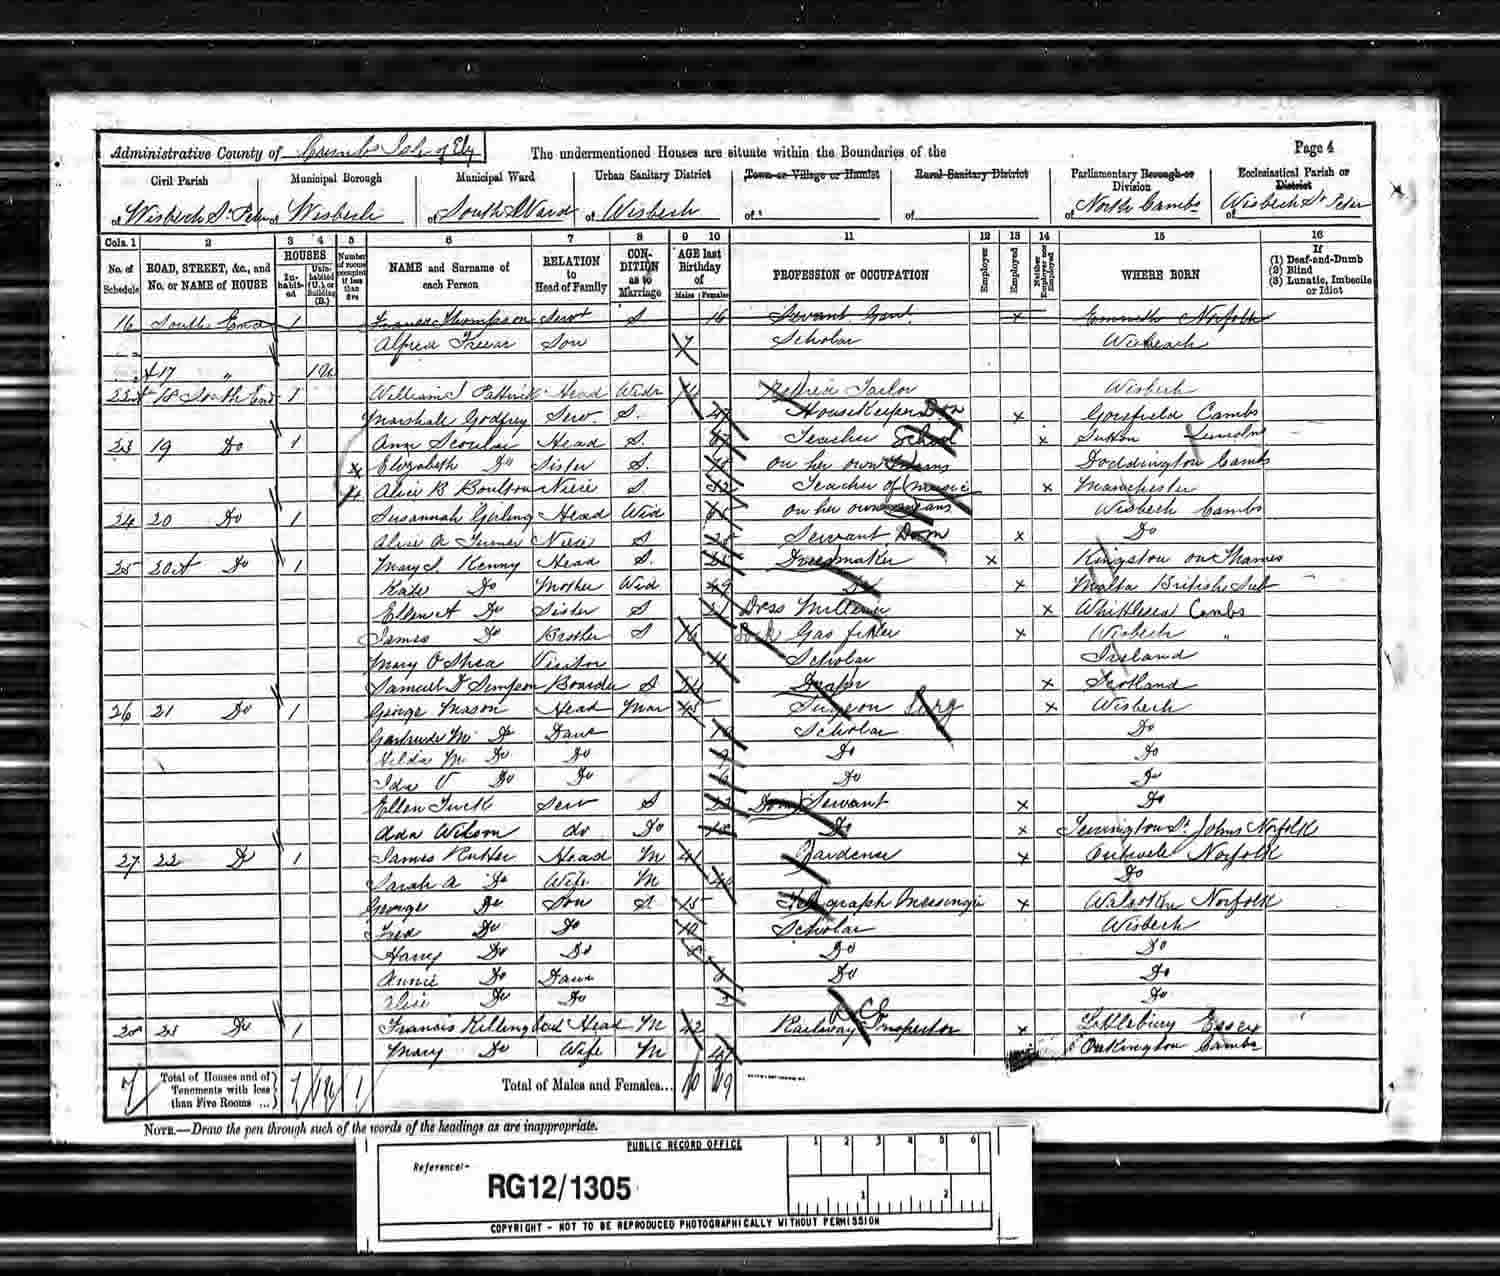 Administrative County of Cambs Isle of Ely
The undermentioned Houses are situate within the Boundaries of the
Page 4
Civil Parish
of Wisbech St Peter
Municipal Borough
of Wisbech
Municipal Ward
of South Ward
Urban Sanitary District
of Wisbech
Town or Village or Hamlet
of
Rural Sanitary District
of
Parliamentary Borough or Division
of North Cambs
Ecclesiastical Parish or District
of Wisbech St Peter
Cols. 1 2 3 4 5 6 7 8 9 10 11 12 13 14 15 16
No. of Schedule
ROAD, STREET, &c., and No. or NAME of HOUSE
HOUSES
In-habit-ed
Unin-habited (U.), or Building (B.)
Number of rooms occupied if less than five
NAME and Surname of each Person
RELATION to Head of Family
CON-DITION as to Marriage
AGE last Birthday of
Males Females
PROFESSION or OCCUPATION
Employer
Employed
Neither Employer nor Employed
WHERE BORN
If
(1) Deaf-and-Dumb
(2) Blind
(3) Lunatic, Imbecile or Idiot
16 South End 1 Thompson Servt S 16 Servant x Emneth Norfolk
Alfred Son 7 Scholar Wisbeach
17 " 1 U
18 South End 1 William Head Widr Tailor Wisbech
Marshale Godfrey Serv. S. Housekeeper Dom x Gorefield Cambs
23 19 Do 1 Ann Scoular Head S. Teacher School x Sutton Lincolns
x Elizabeth Do Sister S. on her own means Doddington Cambs
Alice B Boulton Niece S Teacher of music x Manchester
24 20 Do 1 Susannah Girling Head Wid on her own means Wisbech Cambs
Alice A Turner Niece S Servant Dom x Do
25 20A Do 1 Mary Kenny Head S. Dressmaker x Kingston on Thames
Kate Do Mother Wid 49 Do x Malta British Sub
Ellen A Do Sister S 21 Dress Milliner x Whittlesea Cambs
James Do Brother S 16 Gas fitter x Wisbech "
Mary O Shea Visitor 11 Scholar Ireland
Samuel D Simpson Boarder S Draper x Scotland
26 21 Do 1 George Mason Head Mar 45 Surgeon Surg x Wisbech
Gertrude M Do Daur Scholar Do
Hilda M Do Do 9 Do Do
Ida V Do Do Do Do
Ellen Tuck Serv S Dom Servant x Do
Ada Wilson do Do Do x Terrington St Johns Norfolk
27 22 Do 1 James Rutter Head M 41 Gardener x Outwell Norfolk
Sarah A Do Wife M Do
George Do Son S 15 Telegraph Messinger x Walsoken Norfolk
Fred Do Do 10 Scholar Wisbech
Harry Do Do 8 Do Do
Annie Do Daur Do Do
Do Do Do
23 Do 1 Francis Head M 42 Railway Inspector x Littlebury Essex
Mary Do Wife M 47 Oakington Cambs
7 Total of Houses and of Tenements with less than Five Rooms ... 7 1 Total of Males and Females... 10 19
NOTE.—Draw the pen through such of the words of the headings as are inappropriate.
PUBLIC RECORD OFFICE
Reference:-
RG12/1305
1 2 3 4 5 6
1 2
COPYRIGHT - NOT TO BE REPRODUCED PHOTOGRAPHICALLY WITHOUT PERMISSION